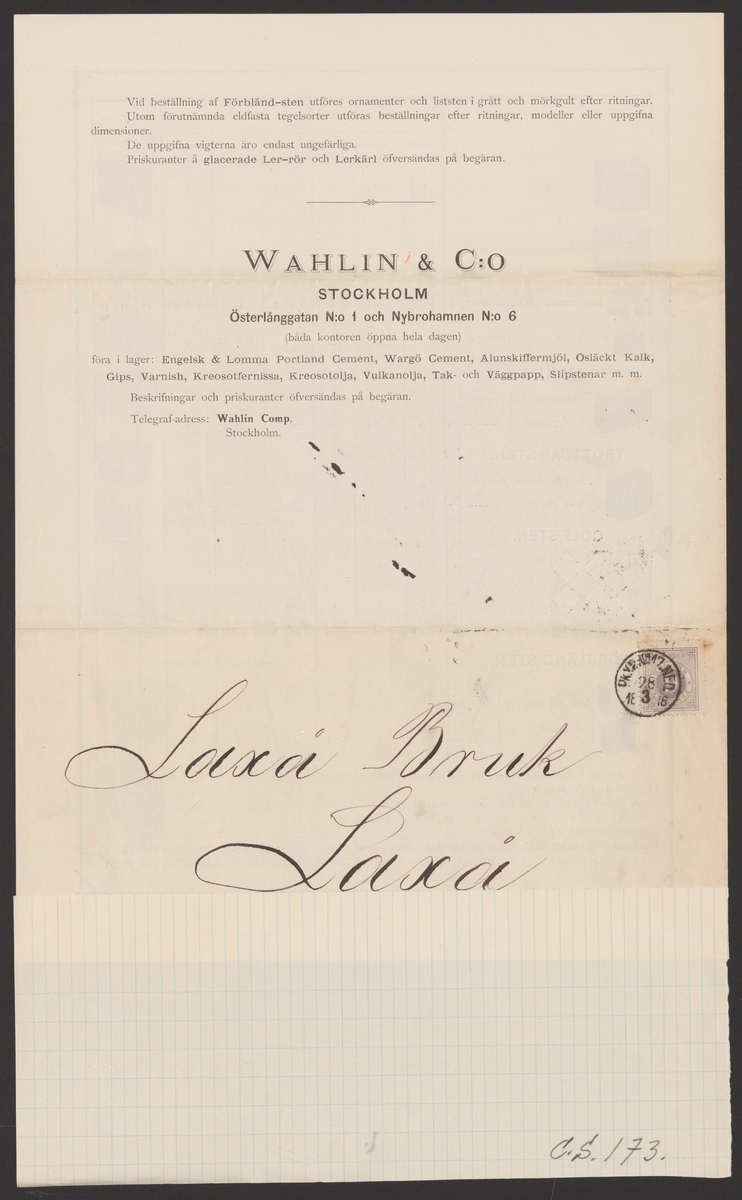 Vid beställning af Förbländ-sten utföres ornamenter och liststen i grått och mörkgult efter ritningar.
Utom förutnämnda eldfasta tegelsorter utföras beställningar efter ritningar, modeller eller uppgifna
dimensioner.
De uppgifna vigterna äro endast ungefärliga.
Priskuranter å glacerade Ler-rör och Lerkärl öfversändas på begäran.
WAHLIN & C:O
STOCKHOLM
Österlånggatan N:o 1 och Nybrohamnen N:o 6
(båda kontoren öppna hela dagen)
föra i lager: Engelsk & Lomma Portland Cement, Wargö Cement, Alunskiffermjöl, Osläckt Kalk,
Gips, Varnish, Kreosotfernissa, Kreosotolja, Vulkanolja, Tak- och Väggpapp, Slipstenar m. m.
Beskrifningar och priskuranter öfversändas på begäran.
Telegraf-adress: Wahlin Comp.
Stockholm.
PKXP. No 17. NED
28
3
Laxå Bruk
Laxå
C.S. 173.